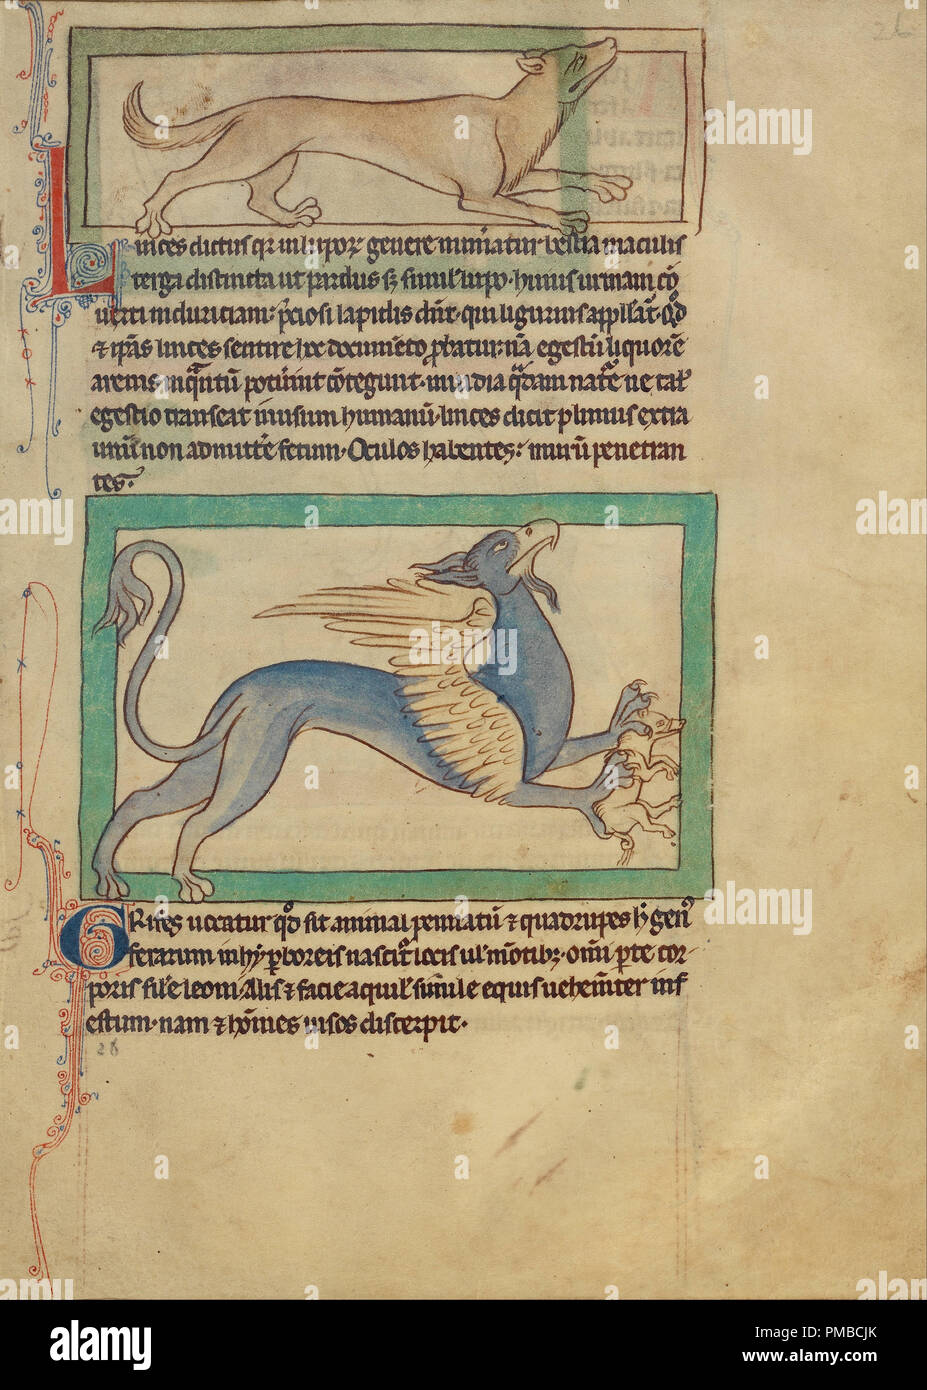 26
Linces dictus qr in lupoꝝ genere nuṁatur. bestia maculis
terga distincta ut pardus sꝫ simil' lupo. huius urinam cō
uerti in duriciam: p̄ciosi lapidis dn̄t. qui ligurius appllat̄. qd̄
⁊ ip̄as linces sentire hoc documēto ꝓbatur: nā egestū liquorē
arenis inqͣntū potu'int cōtegunt. inuidia qͣdam nat'e ne tal'
egestio transeat in usum humanū. linces dicit plinius extra
unū non admitt'e fetum. Oculos habentes: mirū penetran
tes.
GRifes uocatur qd̄ sit animal pennatū ⁊ quadrupes h' gen'
ferarum in hyꝑboreis nascit' locis ul' mōtibꝫ. om̄i ꝑte cor
poris sil'e leoni. Alis ⁊ facie aquil' simile equis uehem̄ter inf
estum. nam ⁊ hōines uisos discerpit.
26
alamy
Image ID: PMBCJK
www.alamy.com